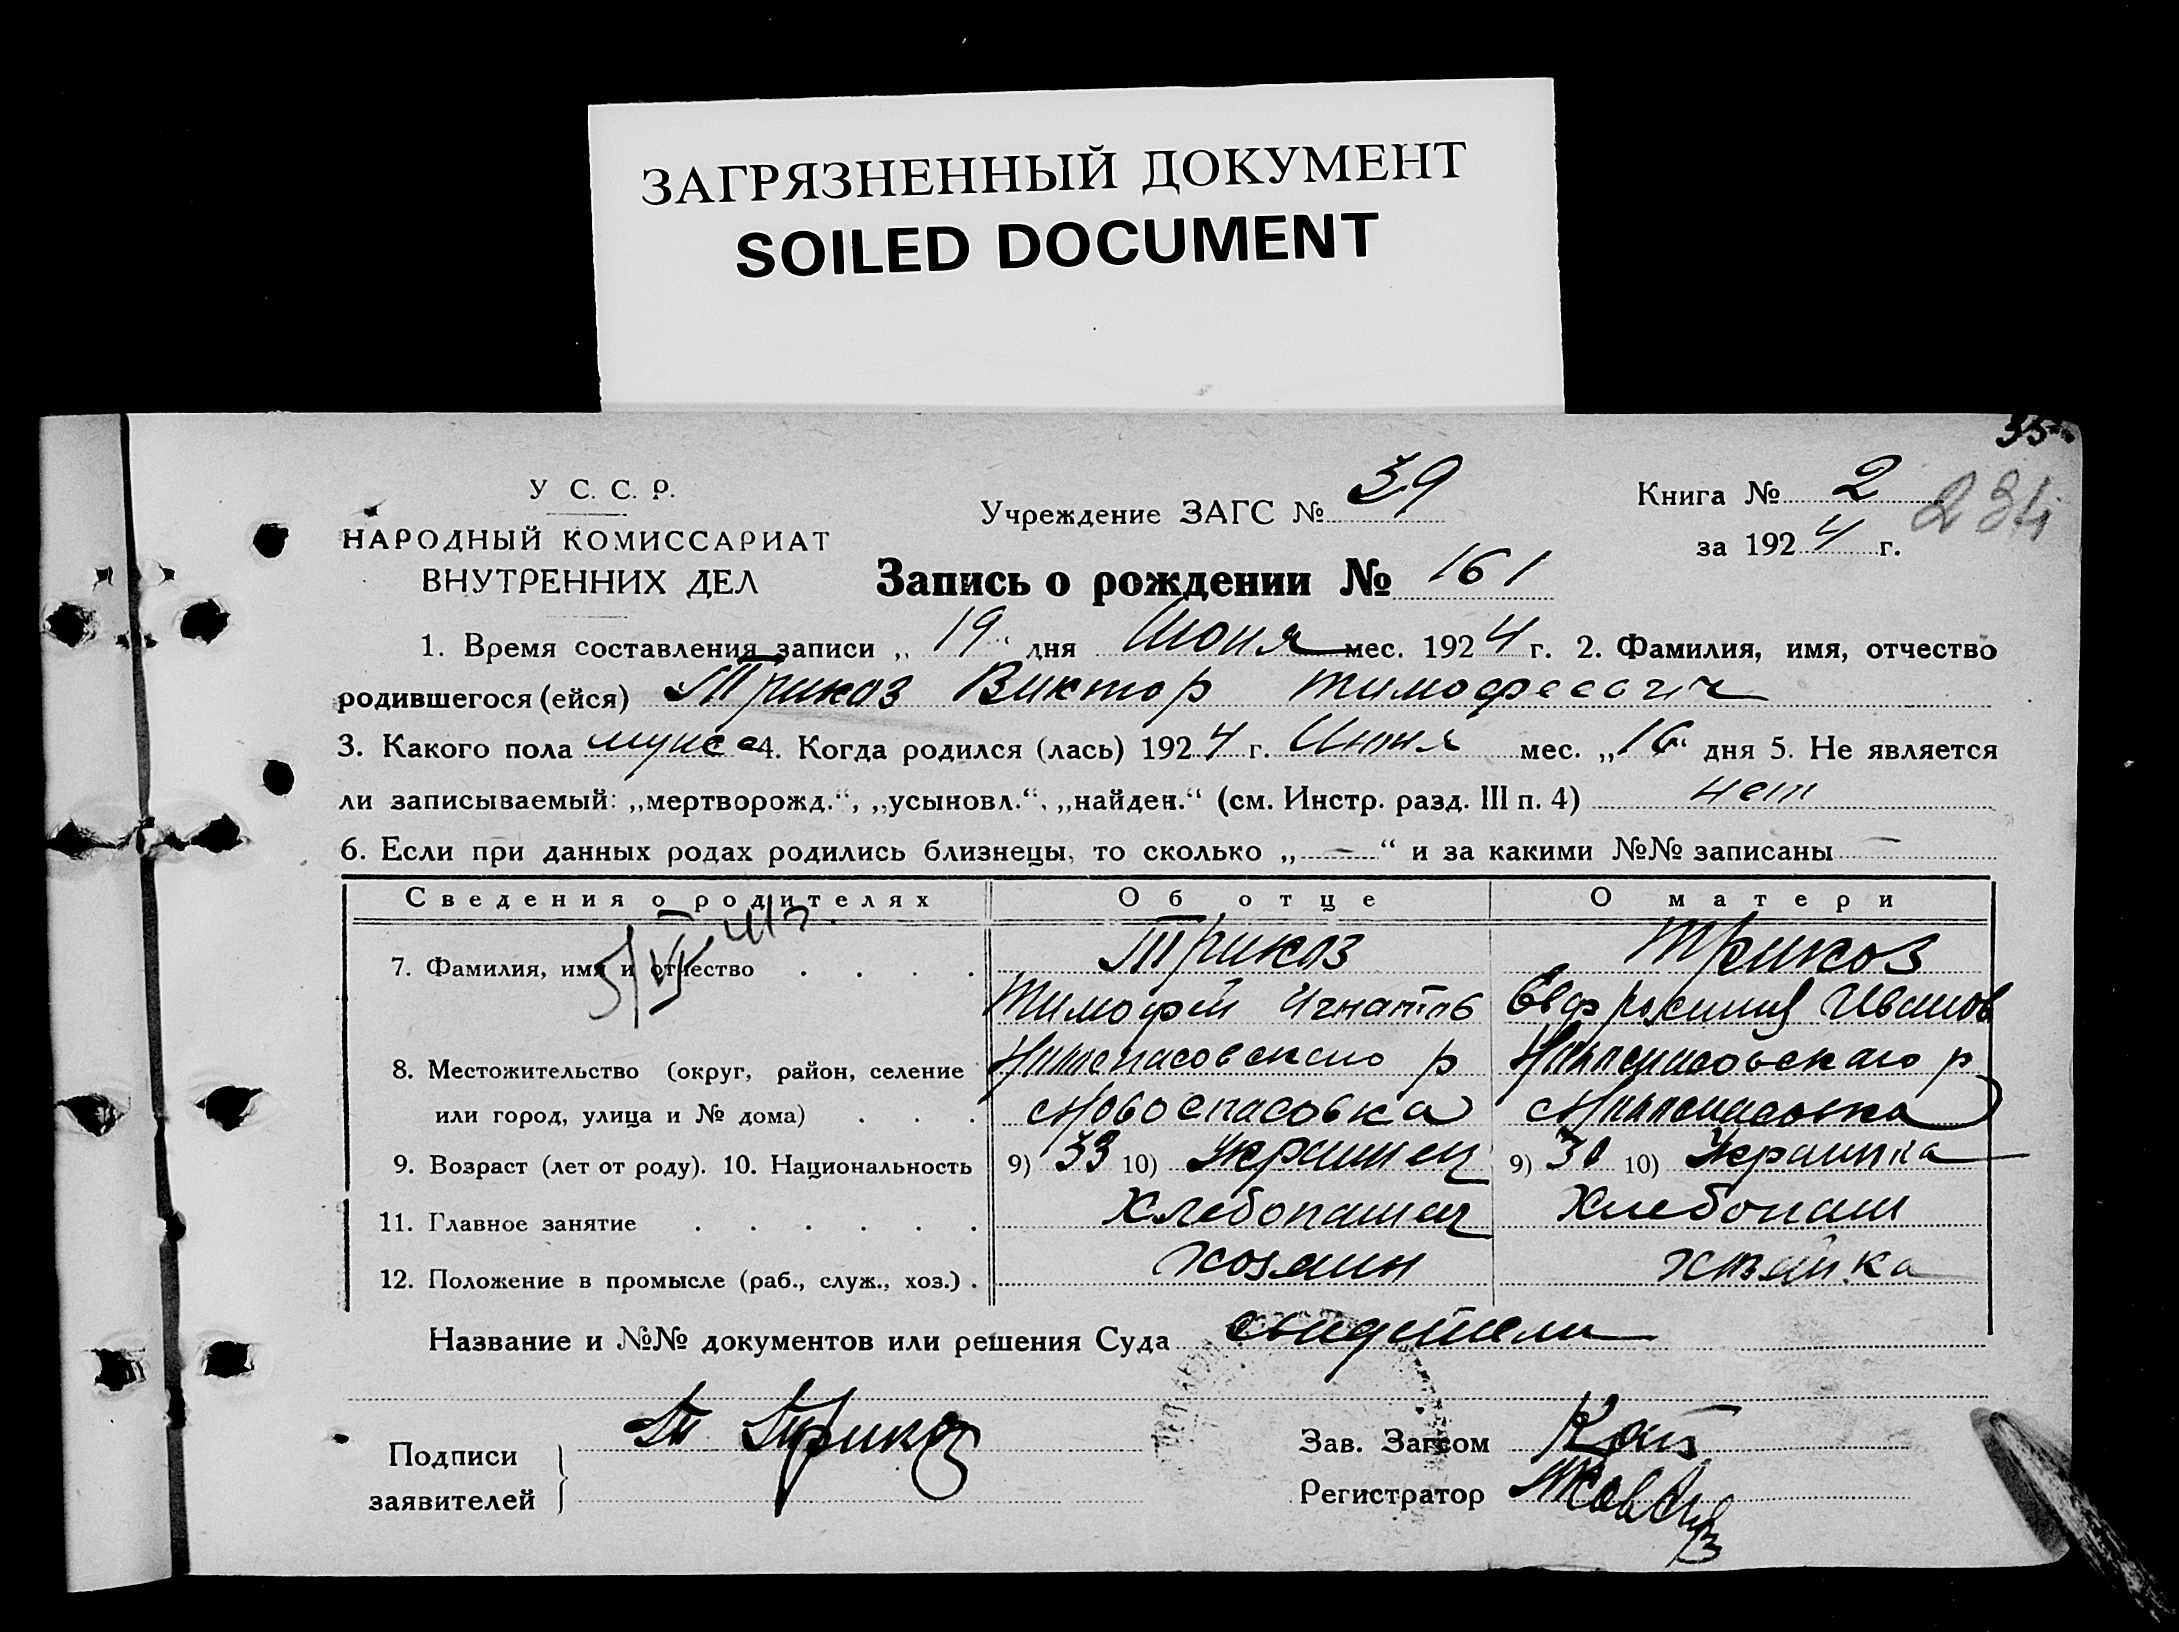 ЗАГРЯЗНЕННЫЙ ДОКУМЕНТ
SOILED DOCUMENT
35
У С. С. Р.
НАРОДНЫЙ КОМИССАРИАТ
ВНУТРЕННИХ ДЕЛ
Учреждение ЗАГС № 39
Книга № 2
за 1924 г.
Запись о рождении № 161
1. Время составления записи „ 19 “ дня Июня мес. 1924 г. 2. Фамилия, имя, отчество
родившегося (ейся) Трикоз Виктор Тимофеевич
3. Какого пола мужс 4. Когда родился (лась) 1924 г. Июня мес. „16“ дня 5. Не является
ли записываемый: „мертворожд.“, „усыновл.“, „найден.“ (см. Инстр. разд. III п. 4) нет
6. Если при данных родах родились близнецы, то сколько „ — “ и за какими №№ записаны —
Сведения о родителях Об отце О матери
7. Фамилия, имя и отчество . . . . Трикоз Трикоз
Тимофей Игнатов Евфросиния Иванов
8. Местожительство (округ, район, селение Новоспасовского р Новоспасовского р
или город, улица и № дома) . . . Новоспасовка Новоспасовка
9. Возраст (лет от роду). 10. Национальность 9) 33 10) Украинец 9) 30 10) Украинка
11. Главное занятие . . . . . . Хлебопашец Хлебопаш
12. Положение в промысле (раб., служ., хоз.) . хозяин хозяйка
Название и №№ документов или решения Суда свидетели
Подписи
заявителей
Т Трикоз
Зав. Загсом
Регистратор